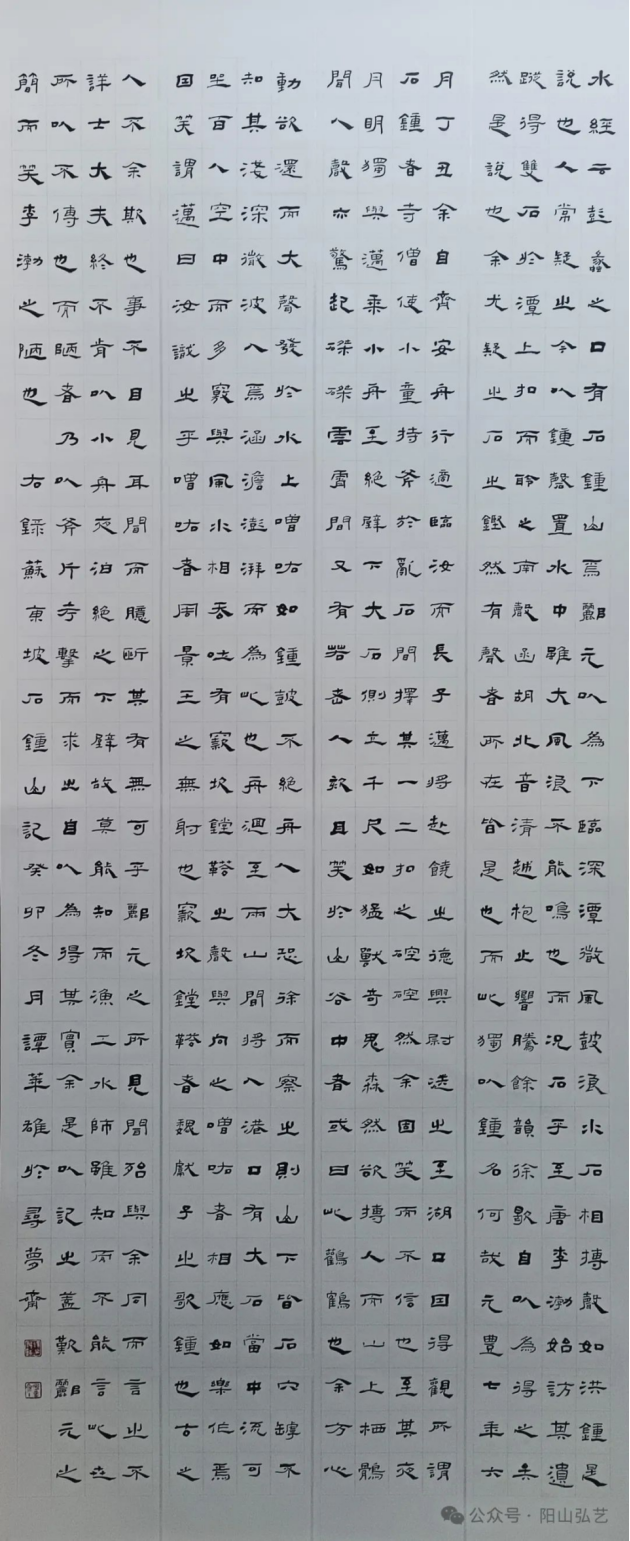 水經云彭蠡之口有石鍾山焉酈元以為下臨深潭微風鼓浪水石相搏聲如洪鍾是
說也人常疑之今以鍾磬置水中雖大風浪不能鳴也而況石乎至唐李渤始訪其遺
蹤得雙石於潭上扣而聆之南聲函胡北音清越枹止響騰餘韻徐歇自以為得之矣
然是說也余尤疑之石之鏗然有聲者所在皆是也而此獨以鍾名何哉元豐七年六
月丁丑余自齊安舟行適臨汝而長子邁將赴饒之德興尉送之至湖口因得觀所謂
石鍾者寺僧使小童持斧於亂石間擇其一二扣之硿硿然余固笑而不信也至其夜
月明獨與邁乘小舟至絕壁下大石側立千尺如猛獸奇鬼森然欲搏人而山上栖鶻
聞人聲亦驚起磔磔雲霄間又有若老人欬且笑於山谷中者或曰此鸛鶴也余方心
動欲還而大聲發於水上噌吰如鍾鼓不絕舟人大恐徐而察之則山下皆石穴罅不
知其淺深微波入焉涵澹澎湃而為此也舟迴至兩山間將入港口有大石當中流可
坐百人空中而多竅與風水相吞吐有窾坎鏜鞳之聲與向之噌吰者相應如樂作焉
因笑謂邁曰汝識之乎噌吰者周景王之無射也窾坎鏜鞳者魏獻子之歌鍾也古之
人不余欺也事不目見耳聞而臆斷其有無可乎酈元之所見聞殆與余同而言之不
詳士大夫終不肯以小舟夜泊絕之下壁故莫能知而漁工水師雖知而不能言此世
所以不傳也而陋者乃以斧斤考擊而求之自以為得其實余是以記之蓋歎酈元之
簡而笑李渤之陋也 右錄蘇東坡石鍾山記癸卯冬月譚華雄於尋夢齋
公众号·阳山弘艺